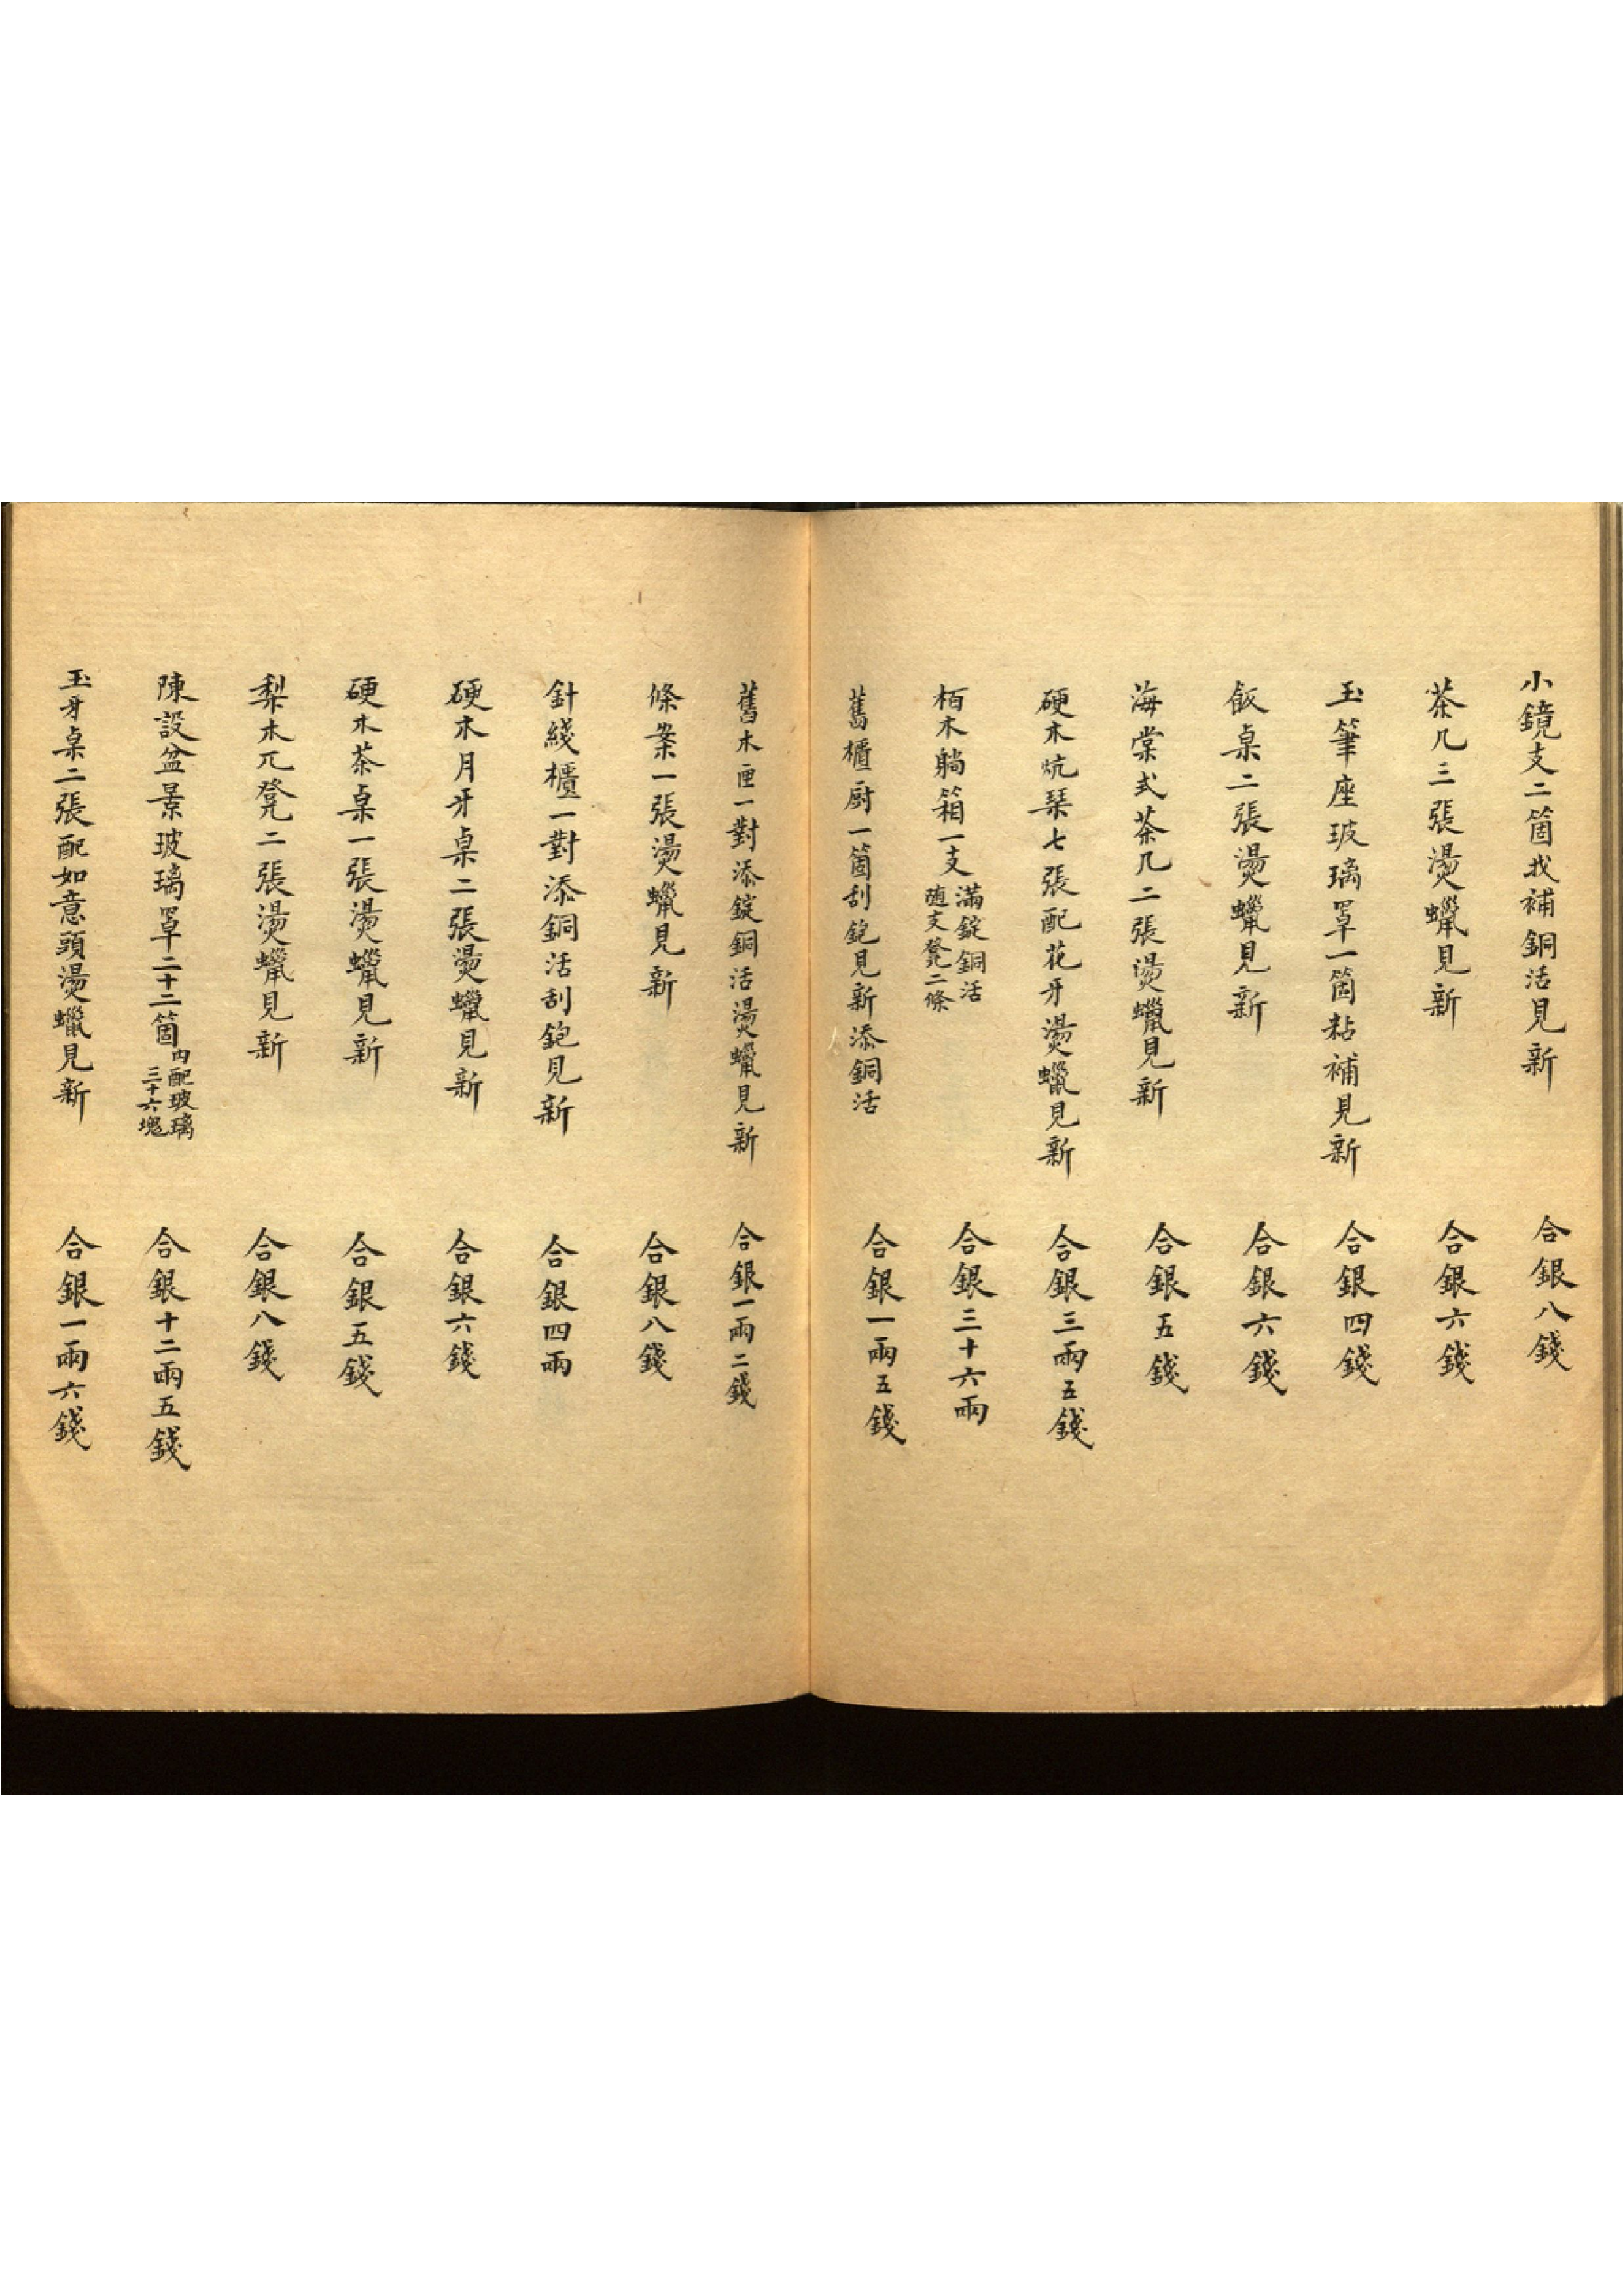 小鏡支二箇找補銅活見新　合銀八錢
茶几三張燙蠟見新　合銀六錢
玉筆座玻璃罩一箇粘補見新　合銀四錢
飯桌二張燙蠟見新　合銀六錢
海棠式茶几二張燙蠟見新　合銀五錢
硬木炕琹七張配花牙燙蠟見新　合銀三兩五錢
栢木躺箱一支滿錠銅活隨支凳二條　合銀三十六兩
舊櫃厨一箇刮鉋見新添銅活　合銀一兩五錢
舊木匣一對添錠銅活燙蠟見新　合銀一兩二錢
條案一張燙蠟見新　合銀八錢
針綫櫃一對添銅活刮鉋見新　合銀四兩
硬木月牙桌二張燙蠟見新　合銀六錢
硬木茶桌一張燙蠟見新　合銀五錢
梨木兀凳二張燙蠟見新　合銀八錢
陳設盆景玻璃罩二十二箇内配玻璃三十六塊　合銀十二兩五錢
玉牙桌二張配如意頭燙蠟見新　合銀一兩六錢